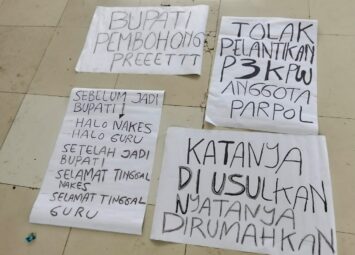 BUPATI
PEMBOHONG
PREEETTT
TOLAK
PELANTIKAN
P3KPW
ANGGOTA
PARPOL
SEBELUM JADI
BUPATI!
HALO NAKES
HALO GURU
SETELAH JADI
BUPATI!
SELAMAT TINGGAL
NAKES
SELAMAT TINGGAL
GURU
KATANYA
DI USULKAN
NYATANYA
DIRUMAHKAN